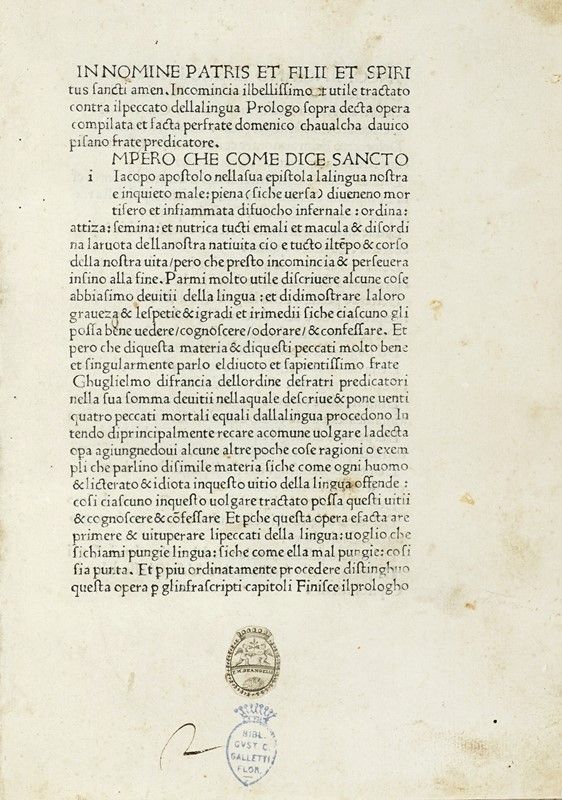 IN NOMINE PATRIS ET FILII ET SPIRI
tus sancti amen. Incomincia ilbellissimo et utile tractato
contra ilpeccato dellalingua Prologo sopra decta opera
compilata et facta perfrate domenico chaualcha dauico
pisano frate predicatore.
MPERO CHE COME DICE SANCTO
i Iacopo apostolo nellasua epistola lalingua nostra
e inquieto male: piena (siche uersa) diueneno mor
tifero et infiammata difuocho infernale : ordina:
attiza: semina: et nutrica tucti emali et macula & disordi
na laruota dellanostra natiuita cio e tucto iltēpo & corso
della nostra uita/pero che presto incomincia & perseuera
insino alla fine. Parmi molto utile discriuere alcune cose
abbiasimo deuitii della lingua : et didimostrare laloro
graueza & lespetie & igradi et irimedii siche ciascuno gli
possa bene uedere/cognoscere/odorare/ & confessare. Et
pero che diquesta materia & diquesti peccati molto bene
et singularmente parlo eldiuoto et sapientissimo frate
Ghuglielmo difrancia dellordine defratri predicatori
nella sua somma deuitii nellaquale descriue & pone uenti
quatro peccati mortali equali dallalingua procedono In
tendo diprincipalmente recare acomune uolgare ladecta
opa agiungnedoui alcune altre poche cose ragioni o exem
pli che parlino disimile materia siche come ogni huomo
& licterato & idiota inquesto uitio della lingua offende :
cosi ciascuno inquesto uolgare tractato possa questi uitii
& cognoscere & cōfessare Et pche questa opera efacta are
primere & uituperare lipeccati della lingua: uoglio che
sichiami pungie lingua: siche come ella mal pungie: cosi
sia punta. Et p piu ordinatamente procedere distinghuo
questa opera p glinfrascripti capitoli Finisce ilprologho
BIBL.
GVST C.
GALLETTI
FLOR.